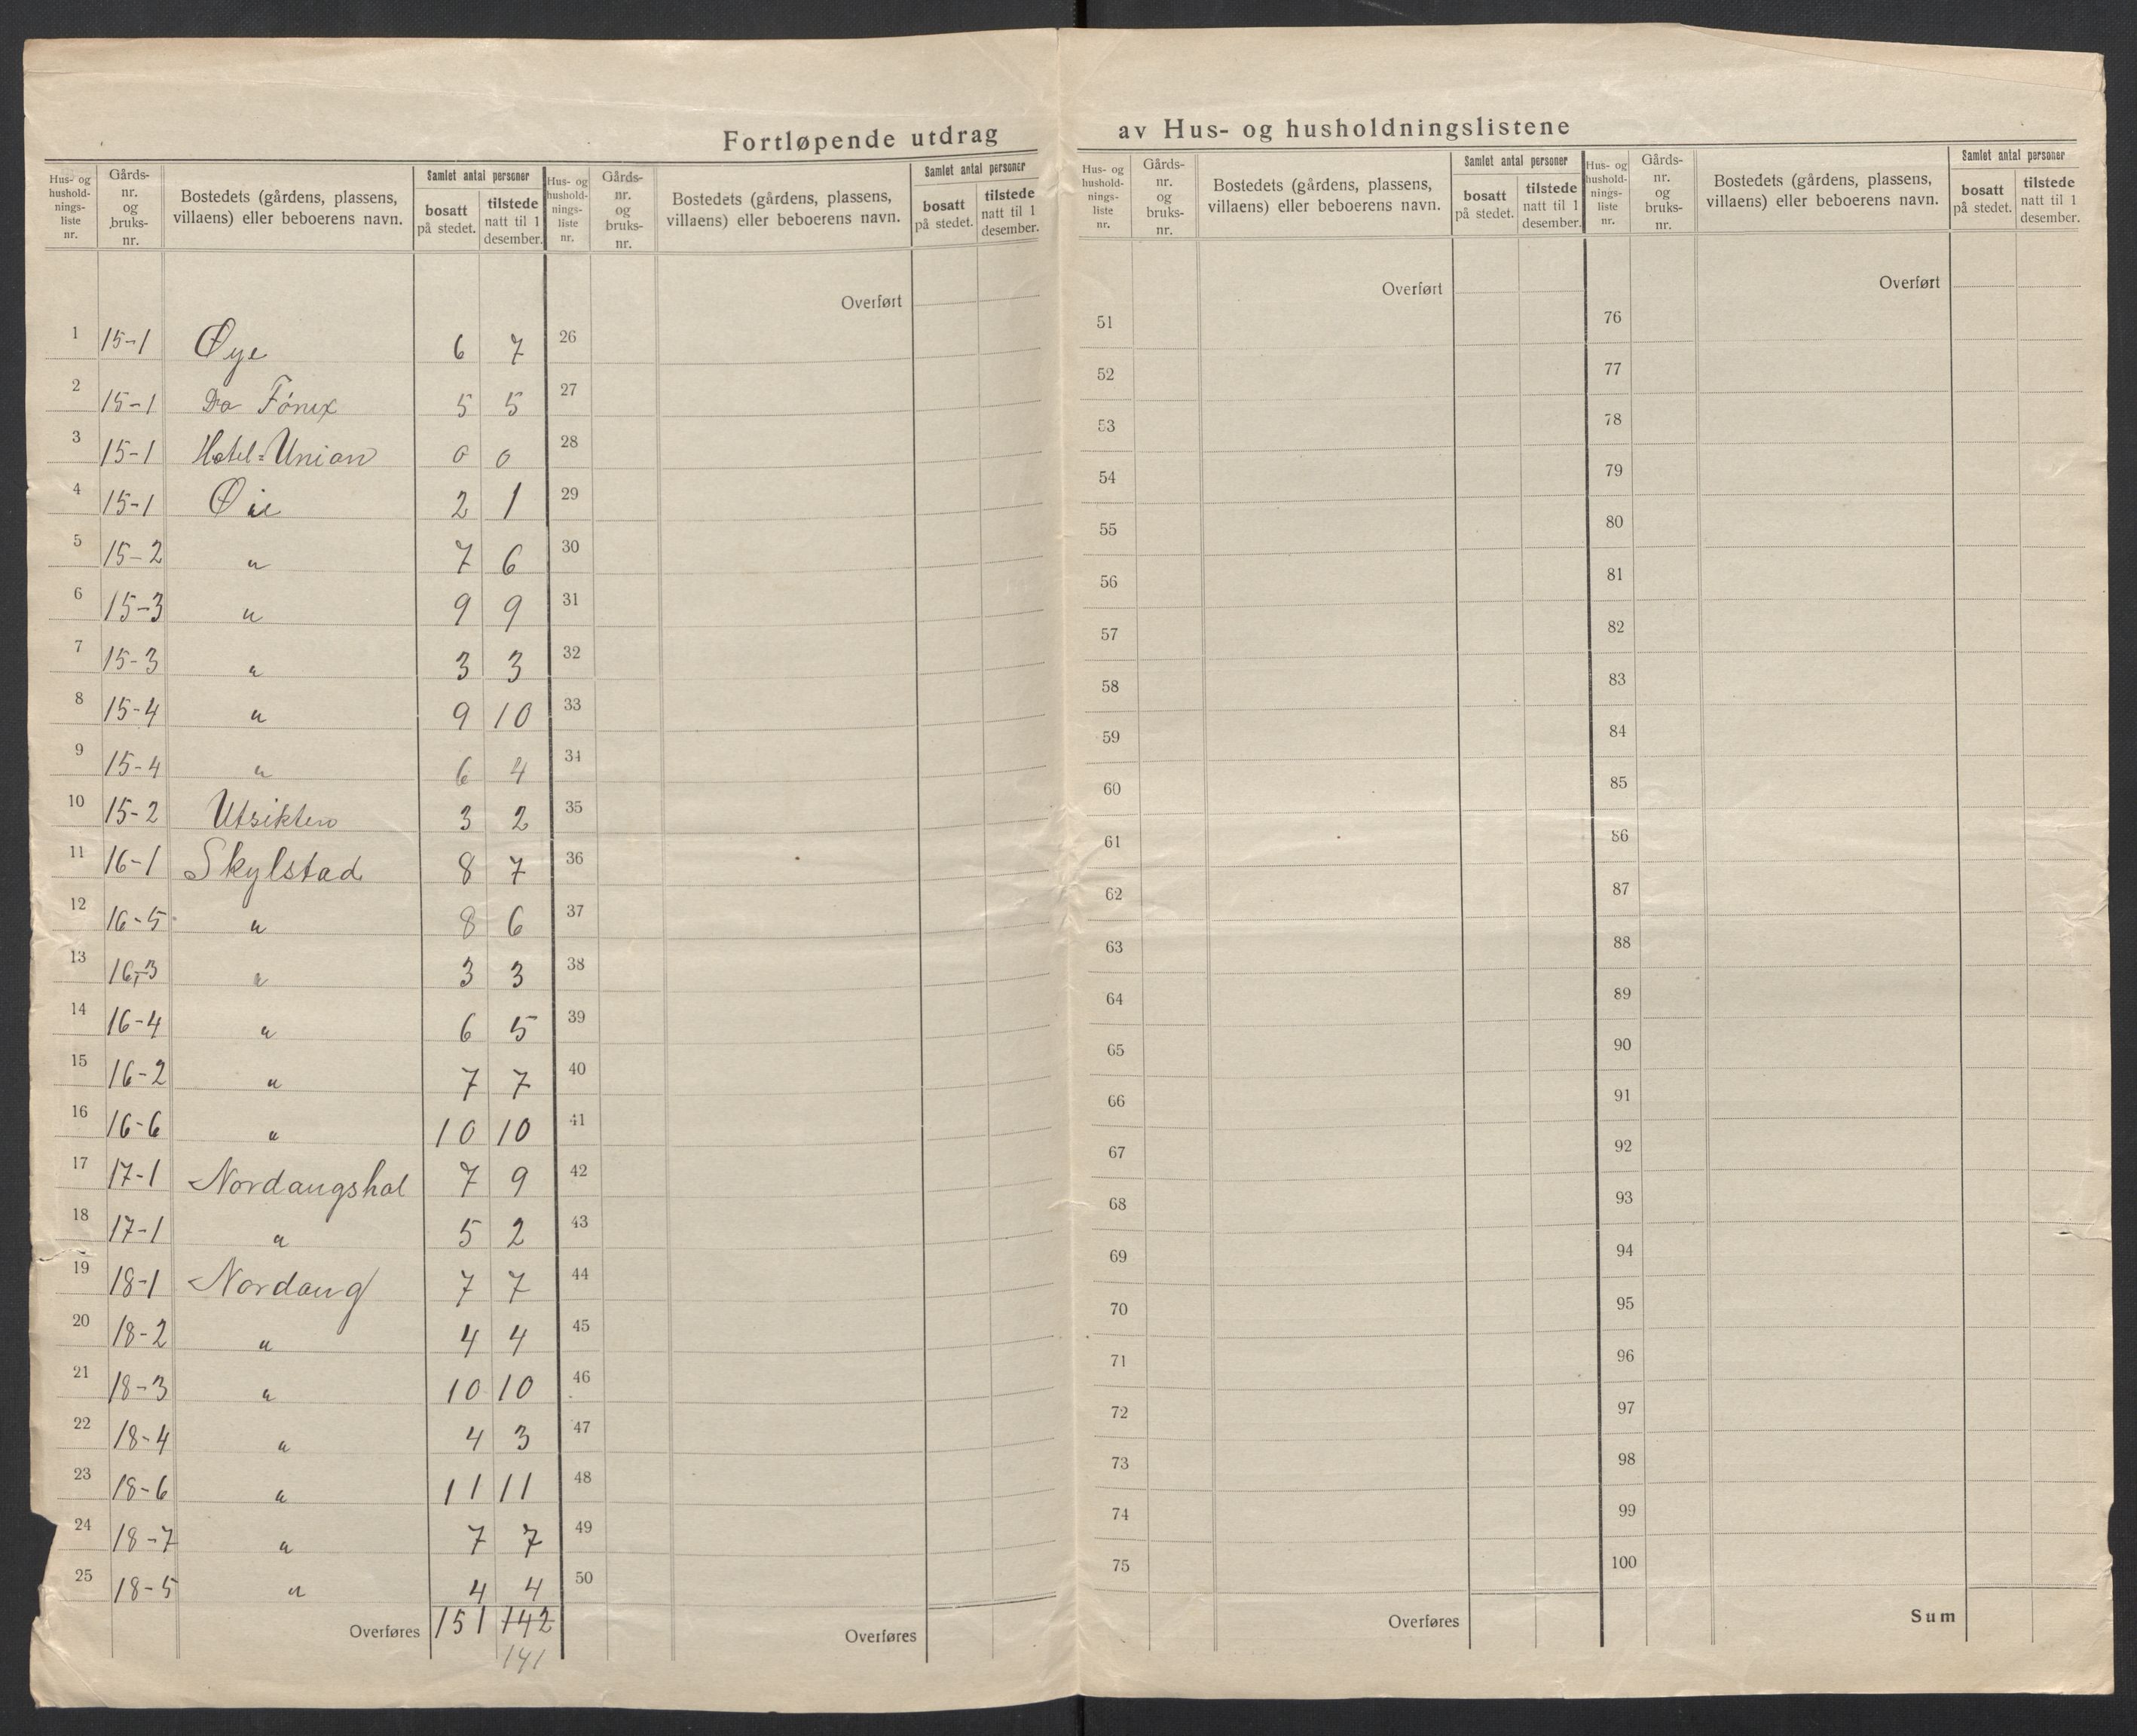 Fortløpende utdrag av Hus- og husholdningslistene
Hus- og hushold-nings-liste nr. Gårds-nr. og bruks-nr. Bostedets (gårdens, plassens, villaens) eller beboerens navn. Samlet antal personer bosatt på stedet. tilstede natt til 1 desember.
Hus- og hushold-nings-liste nr. Gårds-nr. og bruks-nr. Bostedets (gårdens, plassens, villaens) eller beboerens navn. Samlet antal personer bosatt på stedet. tilstede natt til 1 desember.
Hus- og hushold-nings-liste nr. Gårds-nr. og bruks-nr. Bostedets (gårdens, plassens, villaens) eller beboerens navn. Samlet antal personer bosatt på stedet. tilstede natt til 1 desember.
Hus- og hushold-nings-liste nr. Gårds-nr. og bruks-nr. Bostedets (gårdens, plassens, villaens) eller beboerens navn. Samlet antal personer bosatt på stedet. tilstede natt til 1 desember.
1 15-1 Øye 6 7
2 15-1 Do Fönix 5 5
3 15-1 Hotel=Union 0 0
4 15-1 Øie 2 1
5 15-2 " 7 6
6 15-3 " 9 9
7 15-3 " 3 3
8 15-4 " 9 10
9 15-4 " 6 4
10 15-2 Utsikten 3 2
11 16-1 Skylstad 8 7
12 16-5 " 8 6
13 16-3 " 3 3
14 16-4 " 6 5
15 16-2 " 7 7
16 16-6 " 10 10
17 17-1 Nordangshol 7 9
18 17-1 " 5 2
19 18-1 Nordang 7 7
20 18-2 " 4 4
21 18-3 " 10 10
22 18-4 " 4 3
23 18-6 " 11 11
24 18-7 " 7 7
25 18-5 " 4 4
Overføres 151 142
141
Overført
26
27
28
29
30
31
32
33
34
35
36
37
38
39
40
41
42
43
44
45
46
47
48
49
50
Overføres
Overført
51
52
53
54
55
56
57
58
59
60
61
62
63
64
65
66
67
68
69
70
71
72
73
74
75
Overføres
Overført
76
77
78
79
80
81
82
83
84
85
86
87
88
89
90
91
92
93
94
95
96
97
98
99
100
Sum